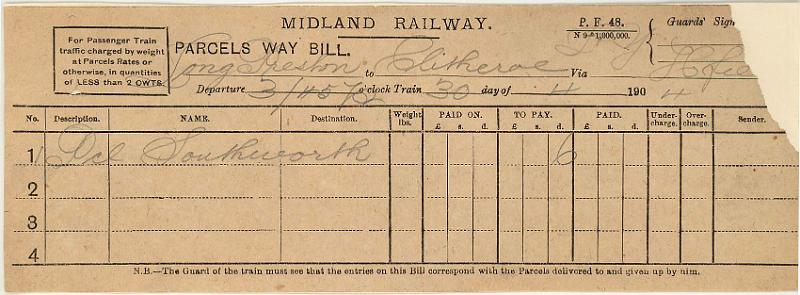 MIDLAND RAILWAY.
P. F. 48.
Guards' Sign
For Passenger Train
traffic charged by weight
at Parcels Rates or
otherwise, in quantities
of LESS than 2 CWTS.
PARCELS WAY BILL.
Long Preston to Clitheroe Via
Departure 3/45 o'clock Train 30 day of 4 190 4
No. Description. NAME. Destination. Weight lbs. PAID ON. £ s. d. TO PAY. £ s. d. PAID. £ s. d. Under-charge. Over-charge. Sender.
1 Pcl Southworth 6
2
3
4
N.B.—The Guard of the train must see that the entries on this Bill correspond with the Parcels delivered to and given up by him.